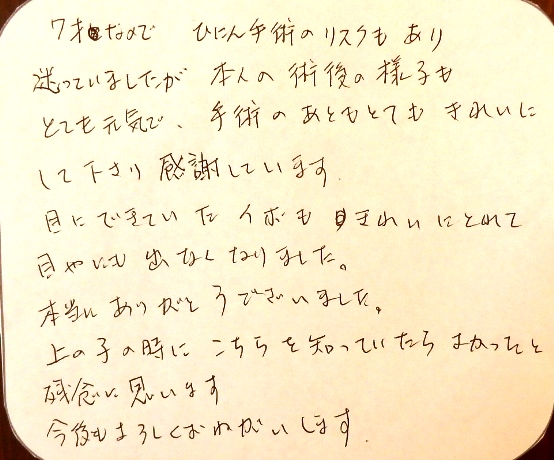 7才なので ひにん手術のリスクもあり
迷っていましたが 本人の術後の様子も
とても元気で、手術のあともとても きれいに
して下さり 感謝しています.
目にできていたイボも きれいにとれて
目やにも出なくなりました。
本当にありがとうございました。
上の子の時に こちらを知っていたらよかったと
残念に思います
今後もよろしくおねがいします.